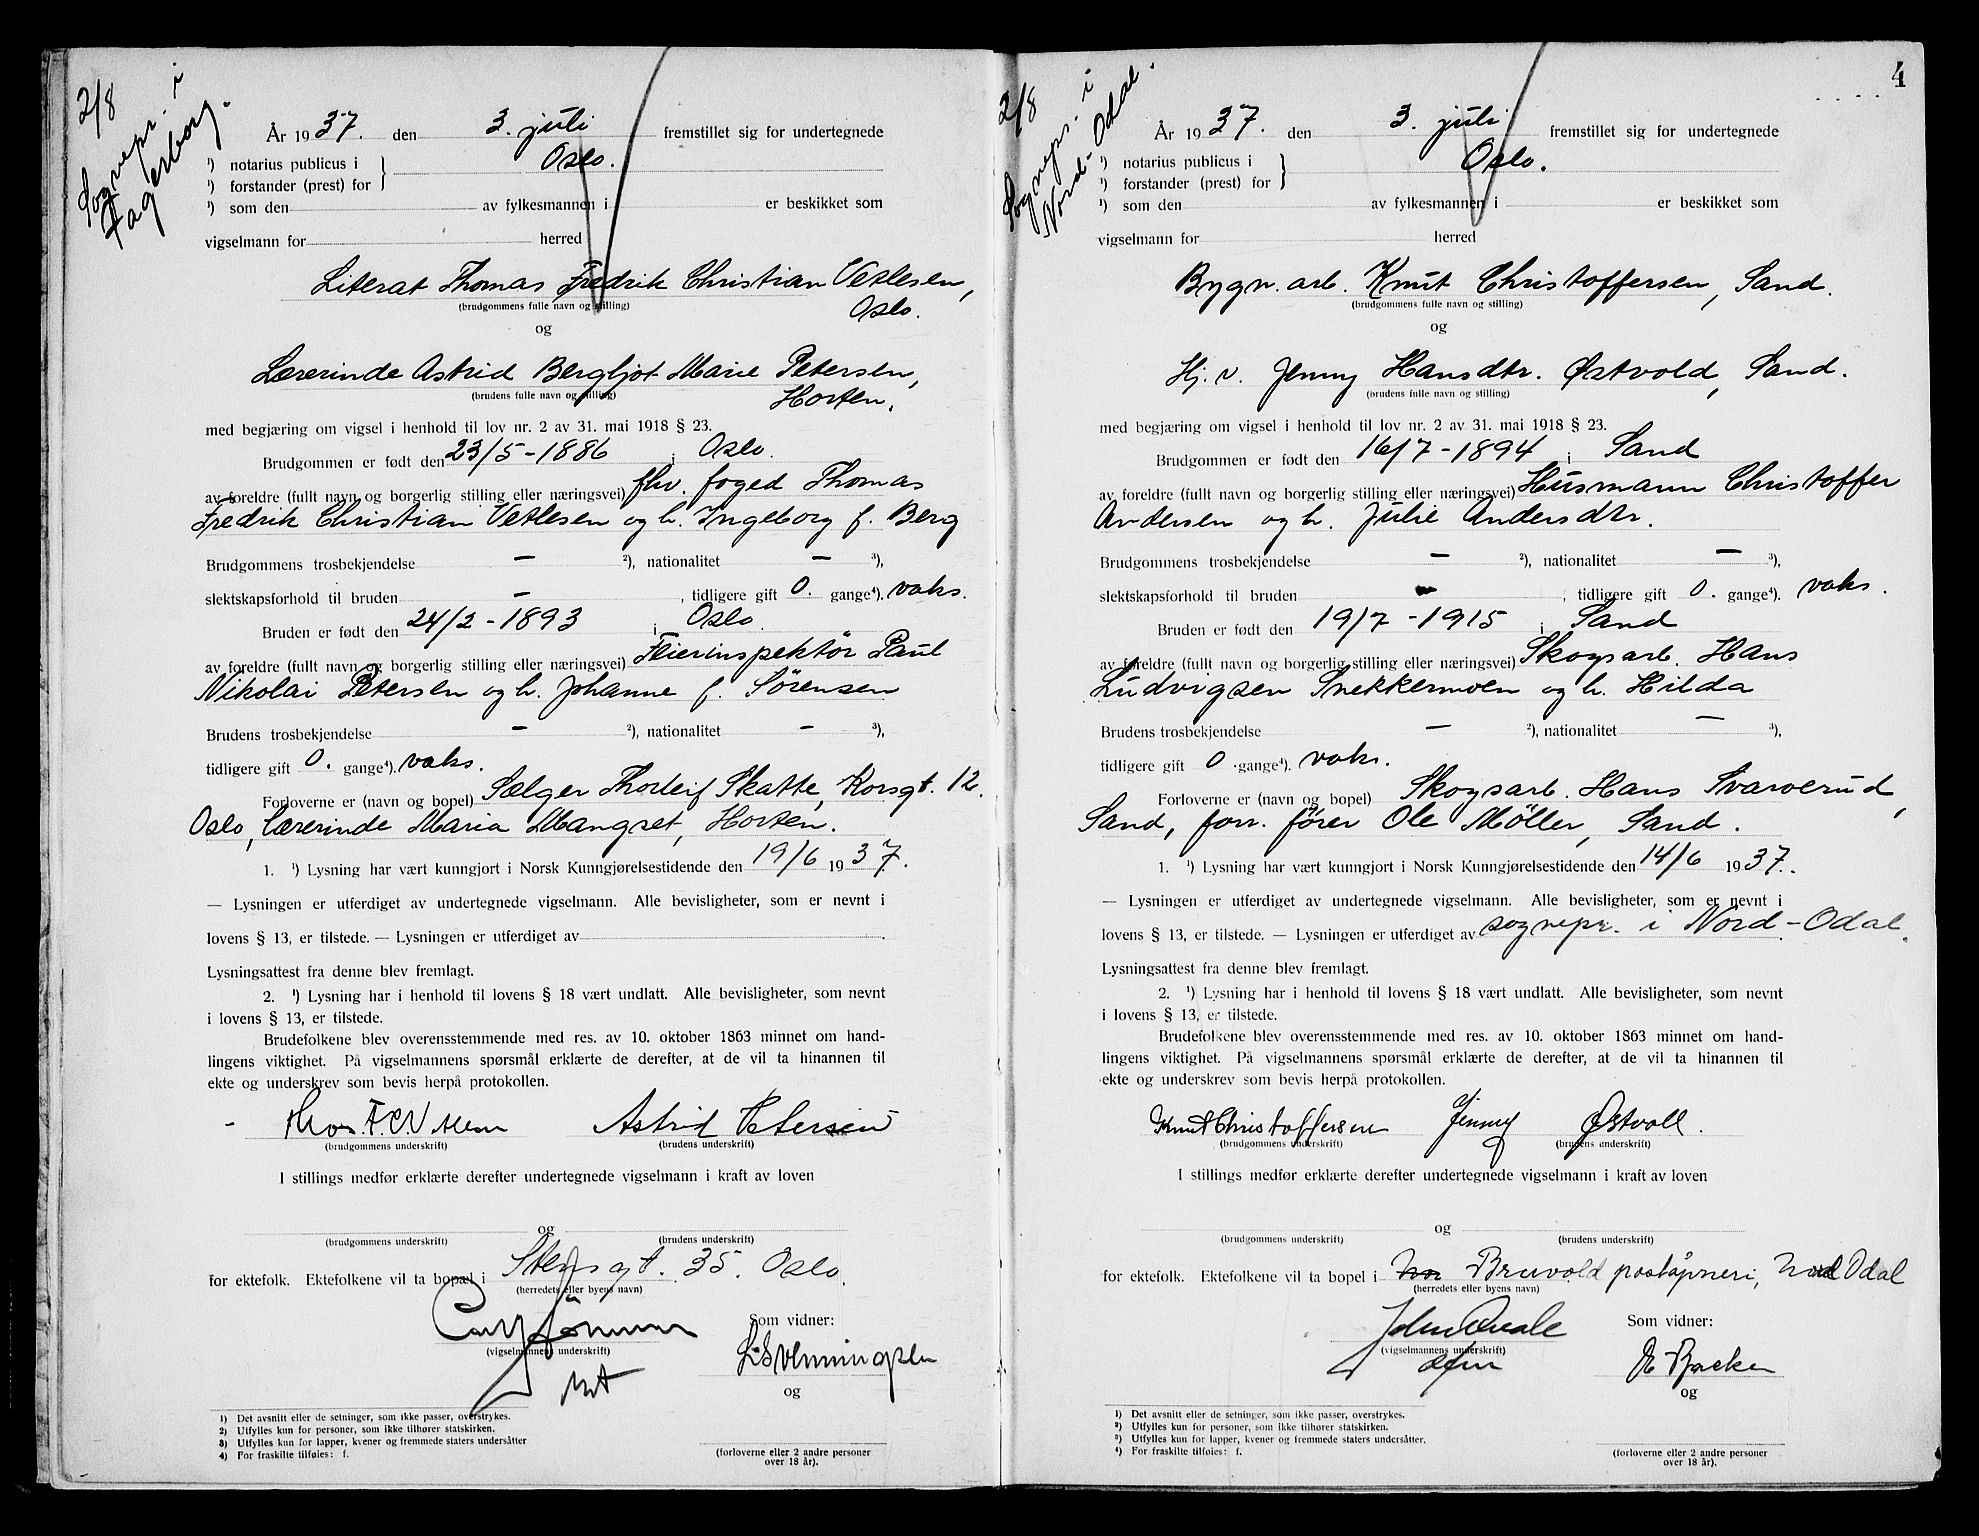 2/8
Sognepr. i
Fagerborg.
År 1937. den 3. juli fremstillet sig for undertegnede
¹) notarius publicus i } Oslo.
¹) forstander (prest) for
¹) som den av fylkesmannen i er beskikket som
vigselmann for herred
Literat Thomas Fredrik Christian Vetlesen,
(brudgommens fulle navn og stilling)
Oslo.
og
Lærerinde Astrid Bergljot Marie Petersen,
(brudens fulle navn og stilling)
Horten.
med begjæring om vigsel i henhold til lov nr. 2 av 31. mai 1918 § 23.
Brudgommen er født den 23/5-1886 i Oslo.
av foreldre (fullt navn og borgerlig stilling eller næringsvei) fhv. foged Thomas
Fredrik Christian Vetlesen og h. Ingeborg f. Berg
Brudgommens trosbekjendelse — ²), nationalitet — ³),
slektskapsforhold til bruden — , tidligere gift 0. gange⁴). vaks.
Bruden er født den 24/2-1893 i Oslo.
av foreldre (fullt navn og borgerlig stilling eller næringsvei) Feierinspektør Paul
Nikolai Petersen og h. Johanne f. Sørensen
Brudens trosbekjendelse — ²), nationalitet — ³),
tidligere gift 0. gange⁴). vaks.
Forloverne er (navn og bopel) Sælger Thorleif Skatte, Korsgt. 12.
Oslo, Lærerinde Maria Mangset, Horten.
1. ¹) Lysning har vært kunngjort i Norsk Kunngjørelsestidende den 19/6 1937.
— Lysningen er utferdiget av undertegnede vigselmann. Alle bevisligheter, som er nevnt i
lovens § 13, er tilstede. — Lysningen er utferdiget av
Lysningsattest fra denne blev fremlagt.
2. ¹) Lysning har i henhold til lovens § 18 vært undlatt. Alle bevisligheter, som nevnt
i lovens § 13, er tilstede.
Brudefolkene blev overensstemmende med res. av 10. oktober 1863 minnet om hand-
lingens viktighet. På vigselmannens spørsmål erklærte de derefter, at de vil ta hinannen til
ekte og underskrev som bevis herpå protokollen.
Thos. F. C. Vetlesen Astrid Petersen
(brudgommens underskrift) (brudens underskrift)
I stillings medfør erklærte derefter undertegnede vigselmann i kraft av loven
og
(brudgommens underskrift) (brudens underskrift)
for ektefolk. Ektefolkene vil ta bopæl i Stensgt. 35. Oslo.
(herredets eller byens navn)
Som vidner:
(vigselmannens underskrift)
L. Svenningsen
og
1) Det avsnitt eller de setninger, som ikke passer, overstrykes.
2) Utfylles kun for personer, som ikke tilhører statskirken.
3) Utfylles kun for lapper, kvener og fremmede staters undersåtter
4) For fraskilte tilføies: f.
(forloverne eller 2 andre personer
over 18 år).
4
2/8
Sognepr. i
Nord-Odal.
År 1937. den 3. juli fremstillet sig for undertegnede
¹) notarius publicus i } Oslo.
¹) forstander (prest) for
¹) som den av fylkesmannen i er beskikket som
vigselmann for herred
Bygn. arb. Knut Christoffersen, Sand.
(brudgommens fulle navn og stilling)
og
Hj. v. Jenny Hansdtr. Østvold, Sand.
(brudens fulle navn og stilling)
med begjæring om vigsel i henhold til lov nr. 2 av 31. mai 1918 § 23.
Brudgommen er født den 16/7-1894 i Sand
av foreldre (fullt navn og borgerlig stilling eller næringsvei) Husmann Christoffer
Andersen og h. Julie Andersdtr.
Brudgommens trosbekjendelse — ²), nationalitet — ³),
slektskapsforhold til bruden — , tidligere gift 0. gange⁴). vaks.
Bruden er født den 19/7-1915 i Sand
av foreldre (fullt navn og borgerlig stilling eller næringsvei) Skogsarb. Hans
Ludvigsen Snekkermoen og h. Hilda
Brudens trosbekjendelse — ²), nationalitet — ³),
tidligere gift 0 gange⁴). vaks.
Forloverne er (navn og bopel) Skogsarb. Hans Svarverud,
Sand, forr. fører Ole Møller, Sand.
1. ¹) Lysning har vært kunngjort i Norsk Kunngjørelsestidende den 14/6 1937.
— Lysningen er utferdiget av undertegnede vigselmann. Alle bevisligheter, som er nevnt i
lovens § 13, er tilstede. — Lysningen er utferdiget av sognepr. i Nord-Odal.
Lysningsattest fra denne blev fremlagt.
2. ¹) Lysning har i henhold til lovens § 18 vært undlatt. Alle bevisligheter, som nevnt
i lovens § 13, er tilstede.
Brudefolkene blev overensstemmende med res. av 10. oktober 1863 minnet om hand-
lingens viktighet. På vigselmannens spørsmål erklærte de derefter, at de vil ta hinannen til
ekte og underskrev som bevis herpå protokollen.
Knut Christoffersen Jenny Østvoll.
(brudgommens underskrift) (brudens underskrift)
I stillings medfør erklærte derefter undertegnede vigselmann i kraft av loven
og
(brudgommens underskrift) (brudens underskrift)
for ektefolk. Ektefolkene vil ta bopel i Bruvold poståpneri, Nord Odal
(herredets eller byens navn)
Som vidner:
(vigselmannens underskrift)
og
1) Det avsnitt eller de setninger, som ikke passer, overstrykes.
2) Utfylles kun for personer, som ikke tilhører statskirken.
3) Utfylles kun for lapper, kvener og fremmede staters undersåtter.
4) For fraskilte tilføies: f.
(forloverne eller 2 andre personer
over 18 år).